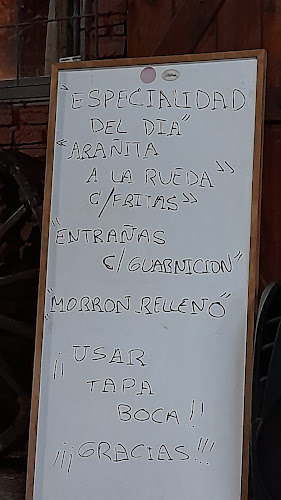 "ESPECIALIDAD
DEL DIA"
"ARAÑITA
A LA RUEDA"
C/FRITAS"
"ENTRAÑAS
C/GUARNICION"
"MORRON RELLENO"
¡¡USAR
TAPA
BOCA!!
¡¡¡GRACIAS!!!